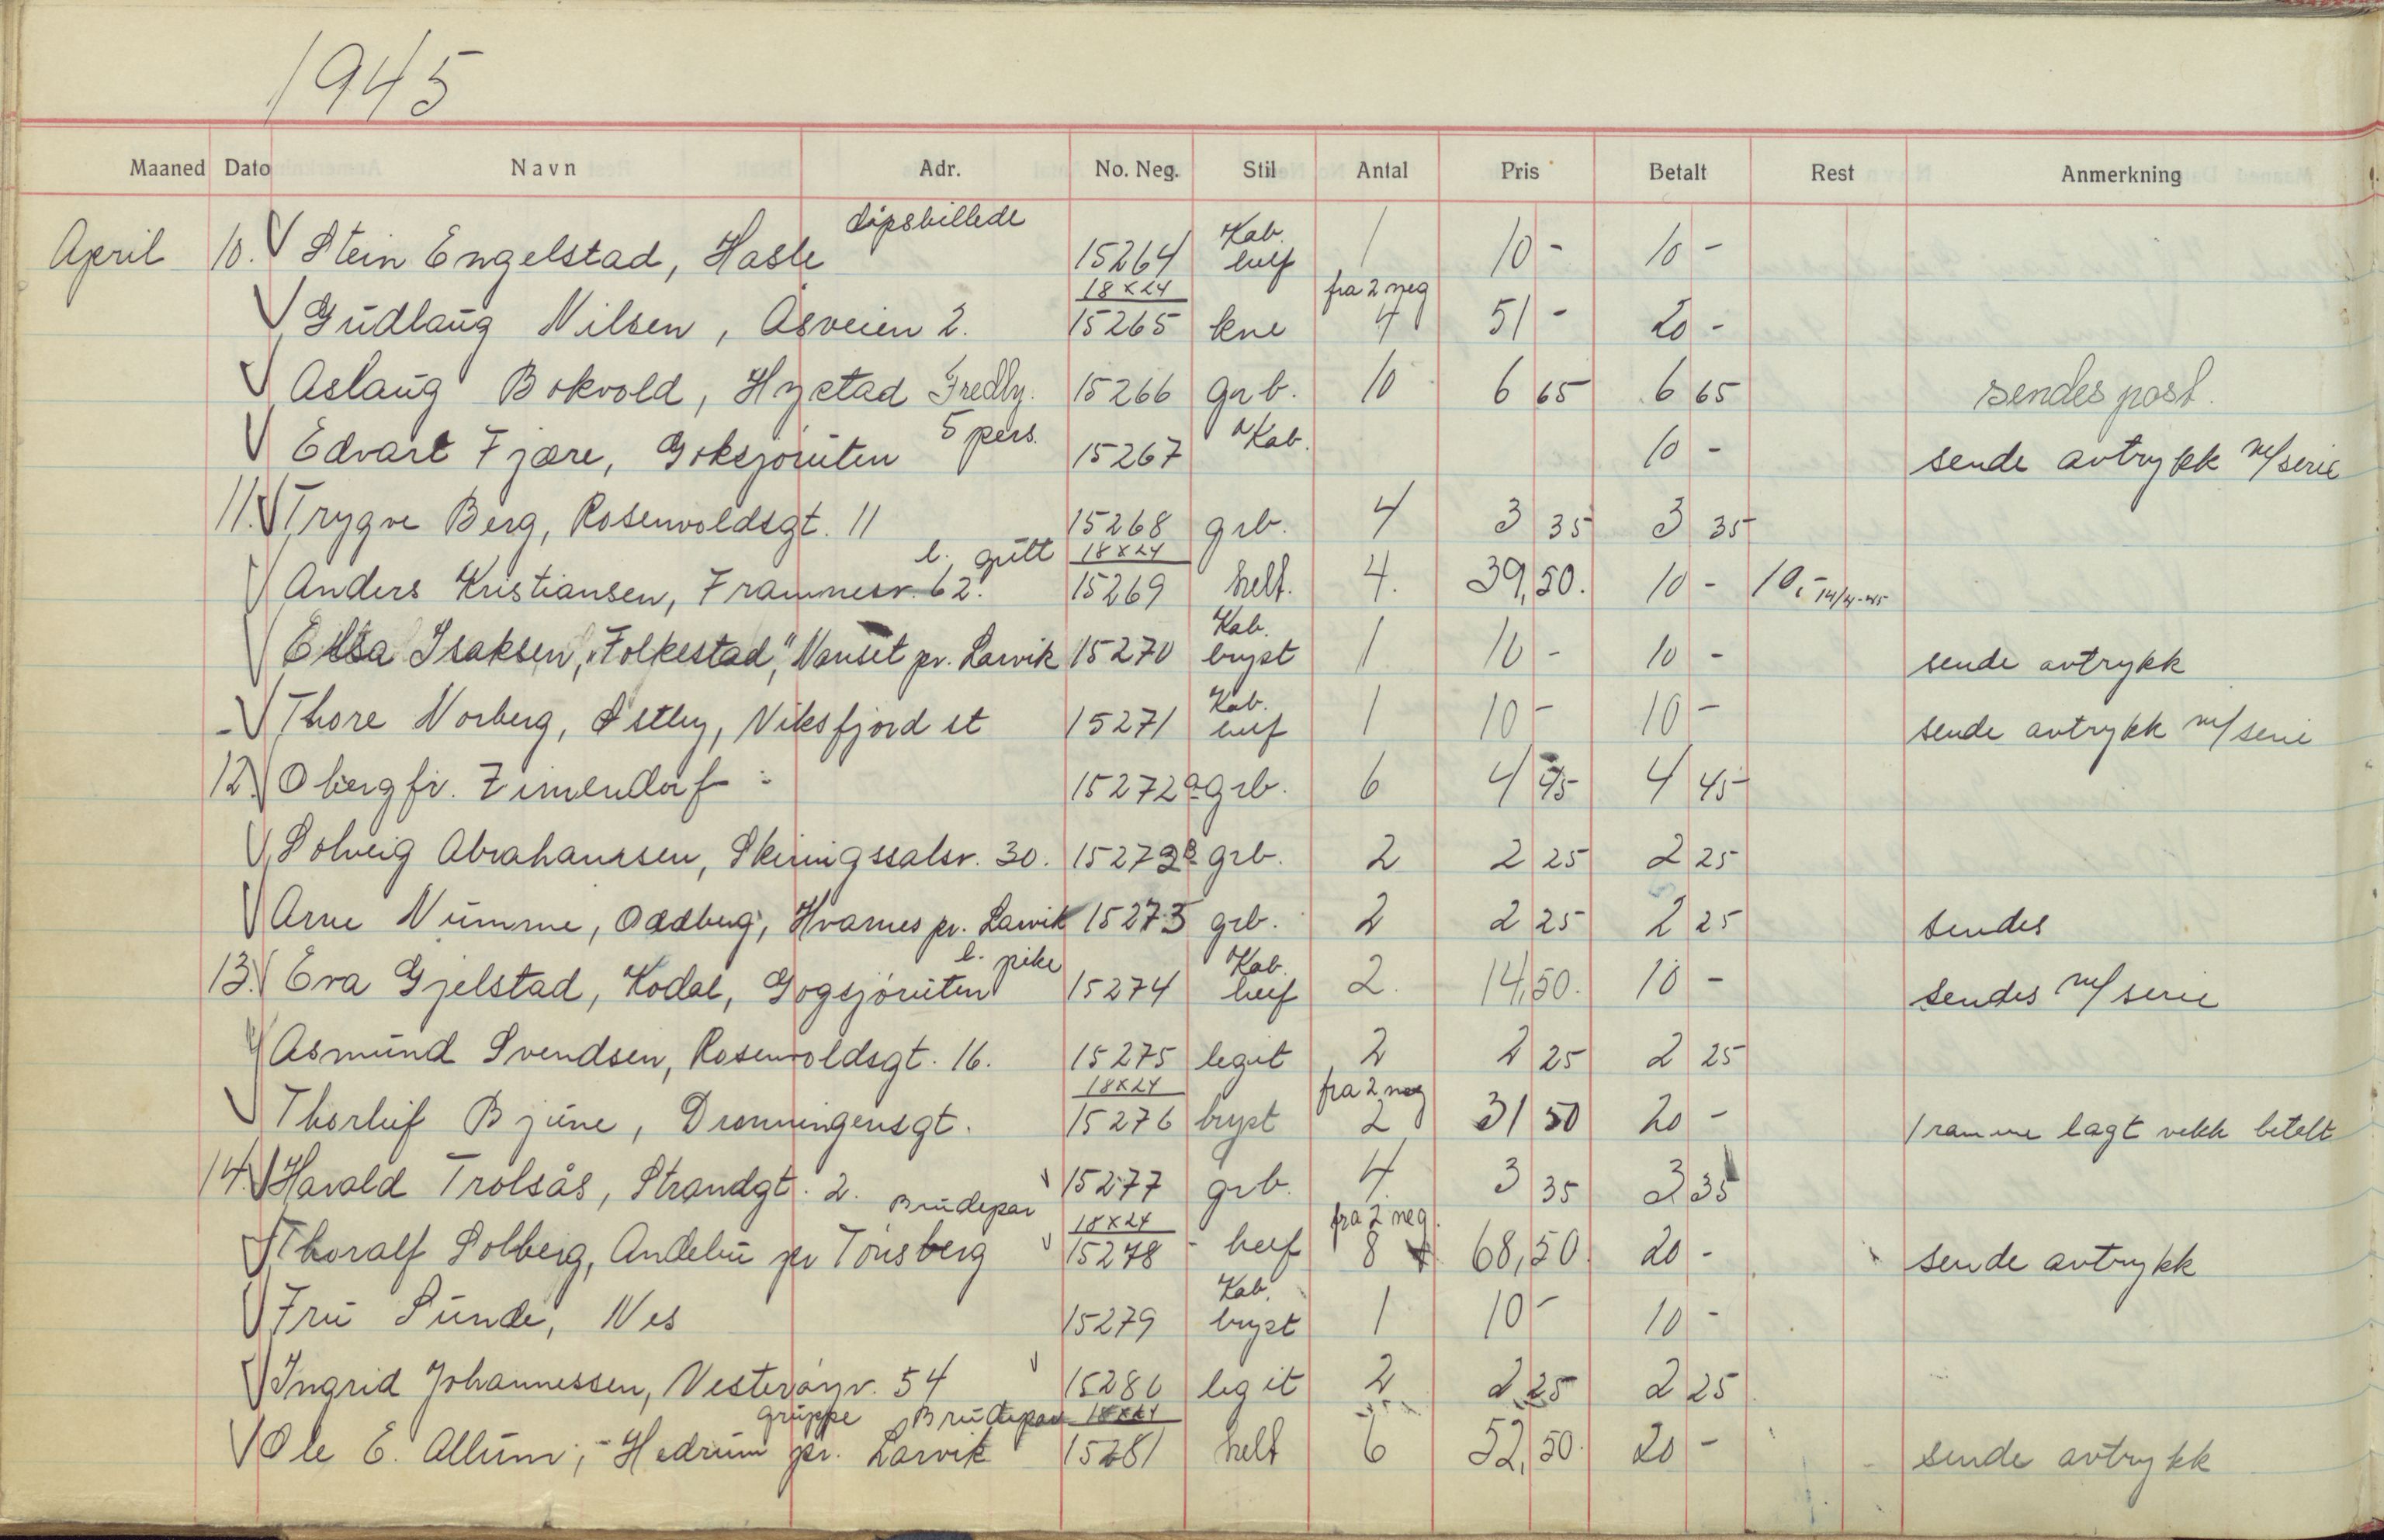 1945
Maaned Dato Navn Adr. No. Neg. Stil Antal Pris Betalt Rest Anmerkning
dåpsbillede Kab.
April 10. Stein Engelstad, Hasle 15264 1 10 - 10 -
18x24 fra 2 neg
Gudlaug Nilsen, Åsveien 2. 15265 kne 4 51 - 20 -
Aslaug Bokvold, Hystad Fredly. 15266 grb. 10 6 65 6 65 sendes post.
5 pers. Kab.
Edvart Fjære, Goksjøruten 15267 10 - sende avtrykk m/serie
11. Trygve Berg, Rosenvoldsgt. 11 15268 grb. 4 3 35 3 35
l. gutt 18x24
Anders Kristiansen, Framnesv. 62. 15269 helf. 4. 39,50. 10 - 10,- 14/4-45
Kab.
Elsa Isaksen, "Folkestad", Nanset pr. Larvik 15270 bryst 1 10 - 10 - sende avtrykk
Kab.
- Thore Norberg, Østby, Viksfjord st 15271 1 10 - 10 - sende avtrykk m/serie
12. Obergfr. Zimendorf 15272a grb. 6 4 45 4 45
Solveig Abrahamsen, Skiringssalsv. 30. 15272B grb. 2 2 25 2 25
Arne Numme, Oddberg, Hvarnes pr. Larvik 15273 grb. 2 2 25 2 25 sendes
l. pike Kab.
13. Eva Gjelstad, Kodal, Gogsjøruten 15274 2. 14,50. 10 - sendes m/serie
Asmund Svendsen, Rosenvoldsgt. 16. 15275 legit 2 2 25 2 25
18x24 fra 2 neg
Thorleif Bjune, Dronningensgt. 15276 bryst 2 31 50 20 - 1 ramme lagt vekk betalt
14. Harald Trolsås, Strandgt. 2. 15277 grb. 4. 3 35 3 35
Brudepar 18x24 fra 2 neg.
Thoralf Solberg, Andebu pr Tønsberg 15278 - 8 68,50. 20 - sende avtrykk
Kab.
Fru Sunde, Nes 15279 bryst 1 10 - 10 -
Ingrid Johannessen, Vesterøyv. 54 15280 legit 2 2 25 2 25
gruppe Brudepar 18x24
Ole E. Allum, - Hedrum pr. Larvik 15281 helf 6 52,50. 20 - sende avtrykk